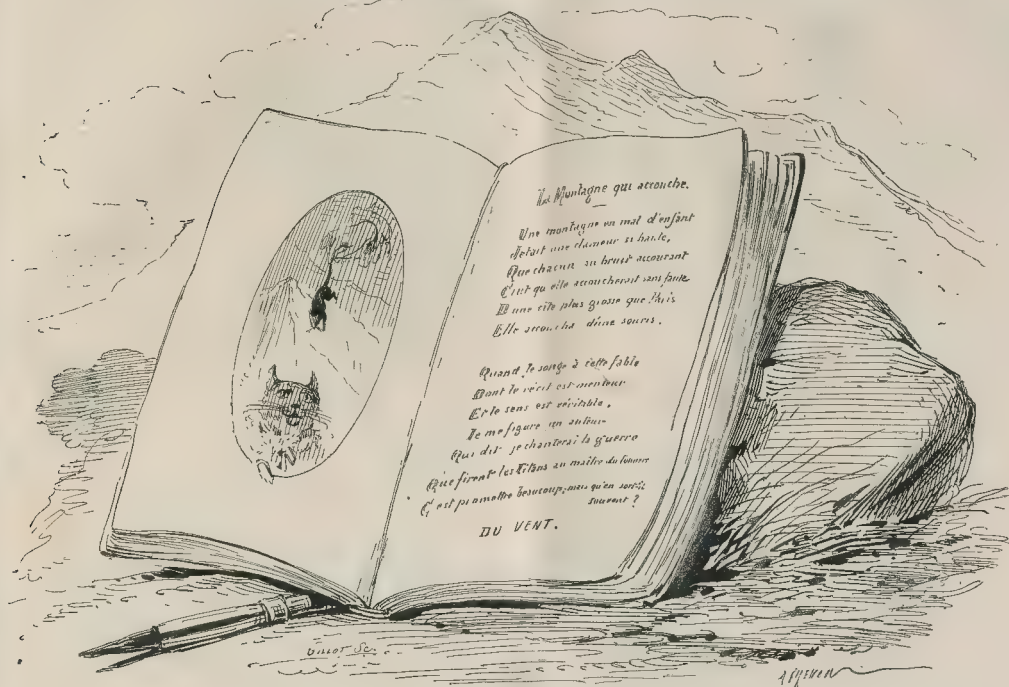 La Montagne qui accouche.
Une montagne en mal d'enfant
Jetait une clameur si haute,
Que chacun au bruit accourant
Crut qu'elle accoucherait sans faute
D'une cité plus grosse que Paris
Elle accoucha d'une souris.
Quand je songe à cette fable
Dont le récit est menteur
Et le sens est véritable,
Je me figure un auteur
Qui dit je chanterai la guerre
Que firent les Titans au maître du tonnerre
C'est promettre beaucoup; mais qu'en sort-il
souvent ?
DU VENT.
GILLOT Sc.